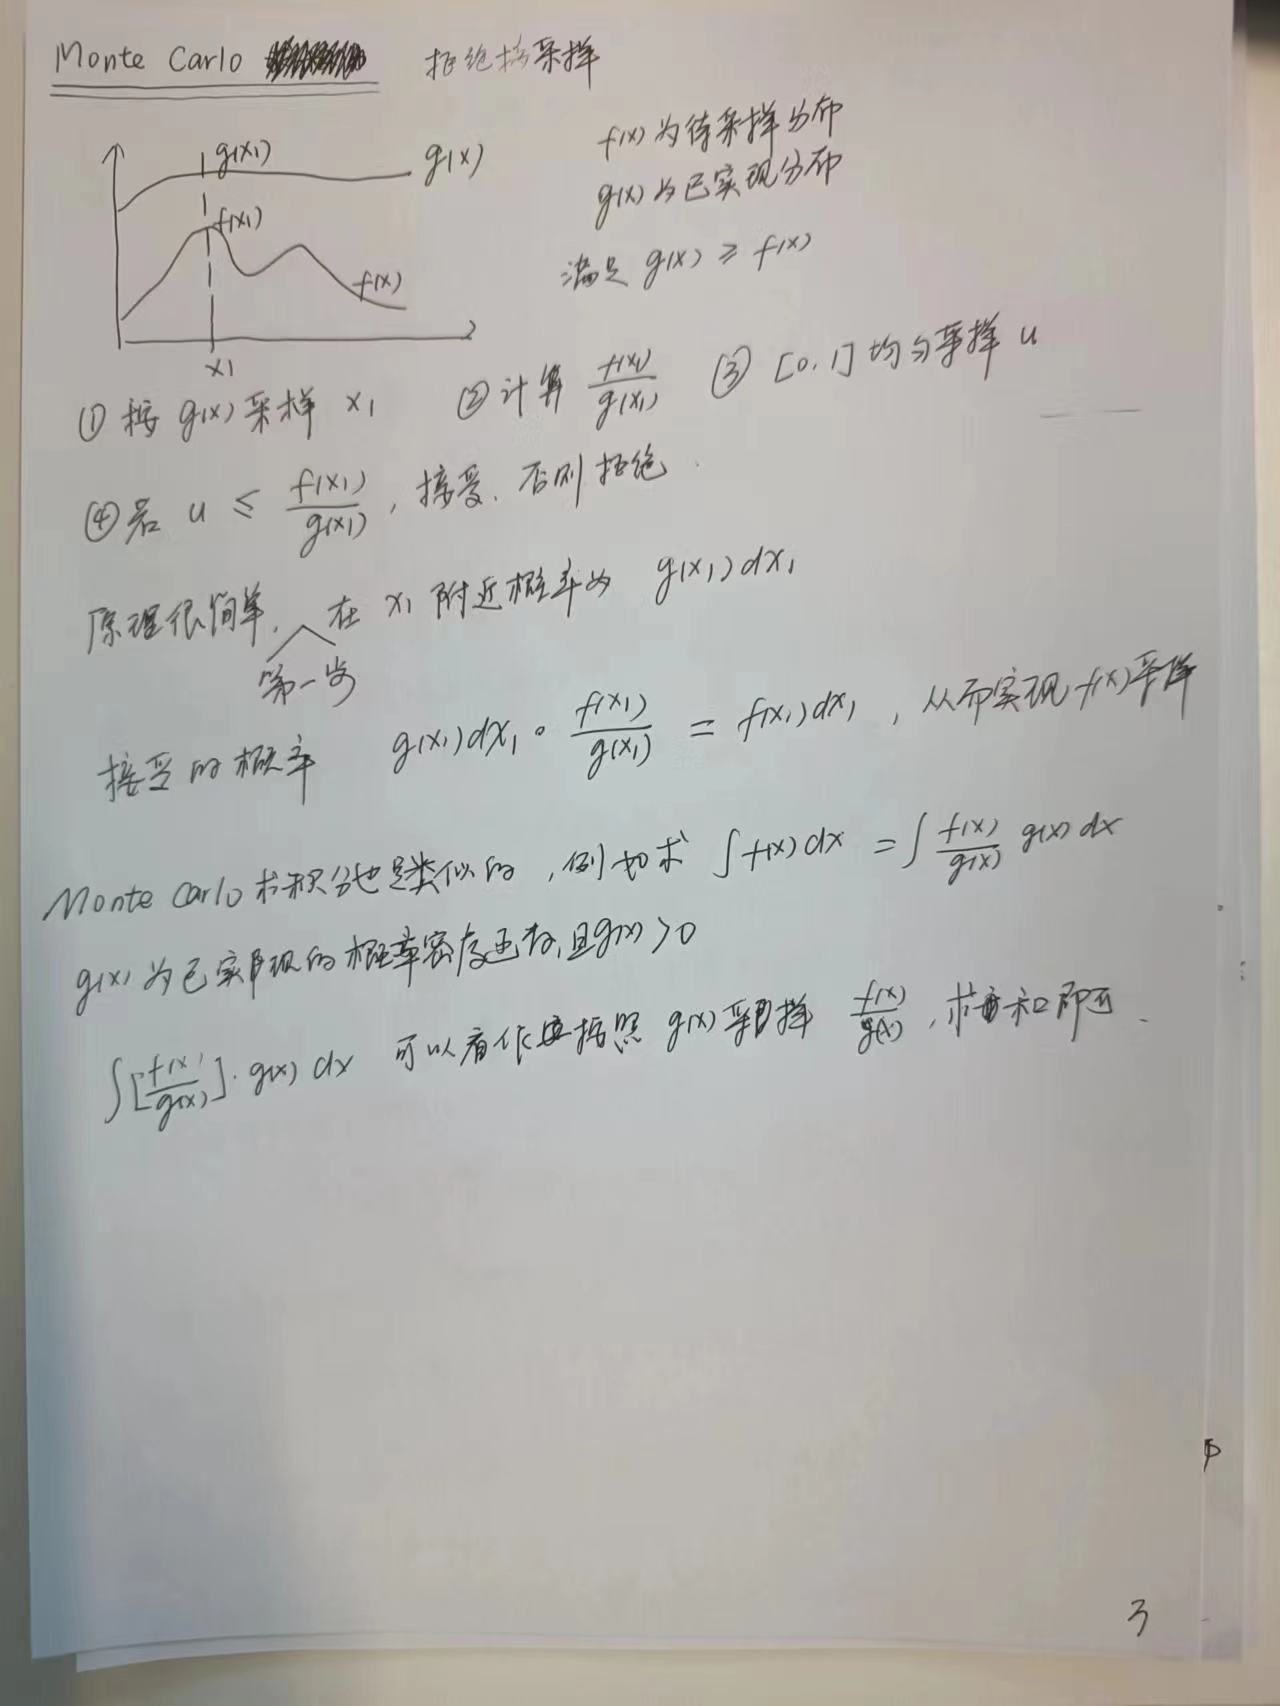 Monte Carlo 拒绝接采样
f(x) 为待采样分布
g(x) 为已实现分布
满足 g(x) ≥ f(x)
g(x₁) g(x)
f(x₁)
f(x)
x₁
① 按 g(x) 采样 x₁ ② 计算 f(x₁)/g(x₁) ③ [0,1] 均匀采样 u
④ 若 u ≤ f(x₁)/g(x₁), 接受, 否则拒绝.
原理很简单, 第一步 在 x₁ 附近概率为 g(x₁)dx₁
接受的概率 g(x₁)dx₁ · f(x₁)/g(x₁) = f(x₁)dx₁, 从而实现 f(x) 采样
Monte Carlo 求积分也是类似的, 例如求 ∫f(x)dx = ∫ f(x)/g(x) g(x) dx
g(x) 为已实现的概率密度函数, 且 g(x) > 0
∫[f(x)/g(x)]·g(x) dx 可以看作按照 g(x) 采样 f(x)/g(x), 求和即可.
3